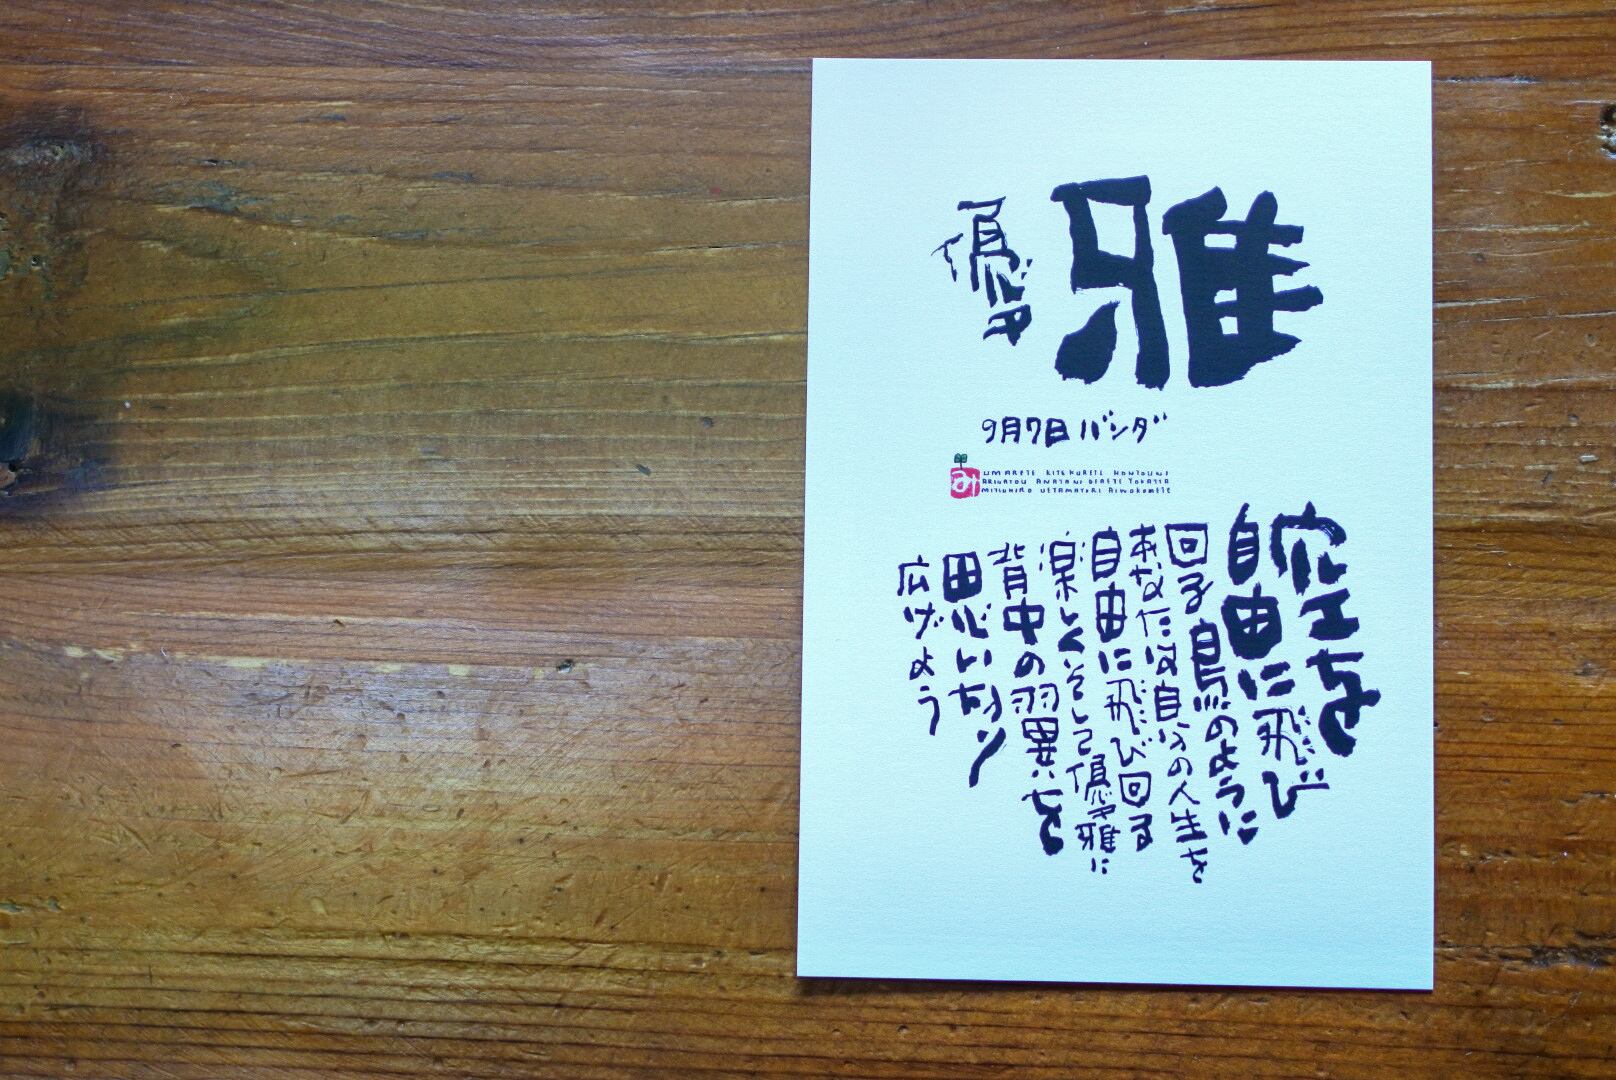 優雅
9月7日 バンダ
み
UMARETE KITEKURETE HONTOUNI
ARIGATOU ANATANI DEAETE YOKATTA
AIWOKOMETE
空を
自由に飛び
回る鳥のように
あなたは自分の人生を
自由に飛び回る
楽しくそして優雅に
背中の翼を
思い切り
広げよう